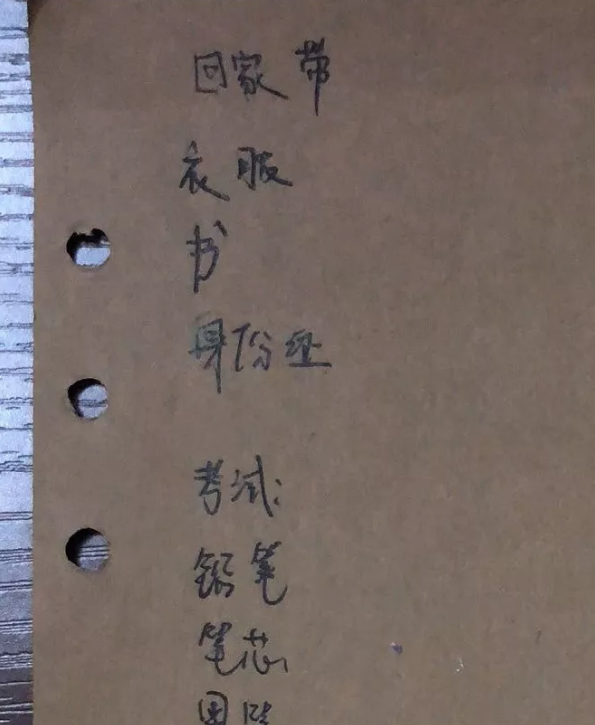 回家带
衣服
书
身份证
考试:
铅笔
笔芯